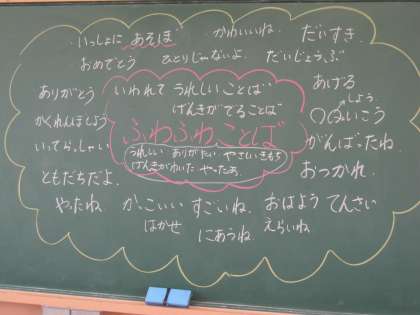 いっしょに あそぼ かわいいね。 だいすき
おめでとう ひとりじゃないよ。 だいじょうぶ
ありがとう いわれて うれしいことば あげる
げんきがでることば しよう
かくれんぼしよう ○○いこう
ふわふわことば
いってらっしゃい がんばったね。
うれしい ありがたい やさしいきもち
げんきがわいた やったあ
ともだちだよ。 おつかれ
やったね かっこいい すごいね。 おはよう てんさい
はかせ にあうね えらいね